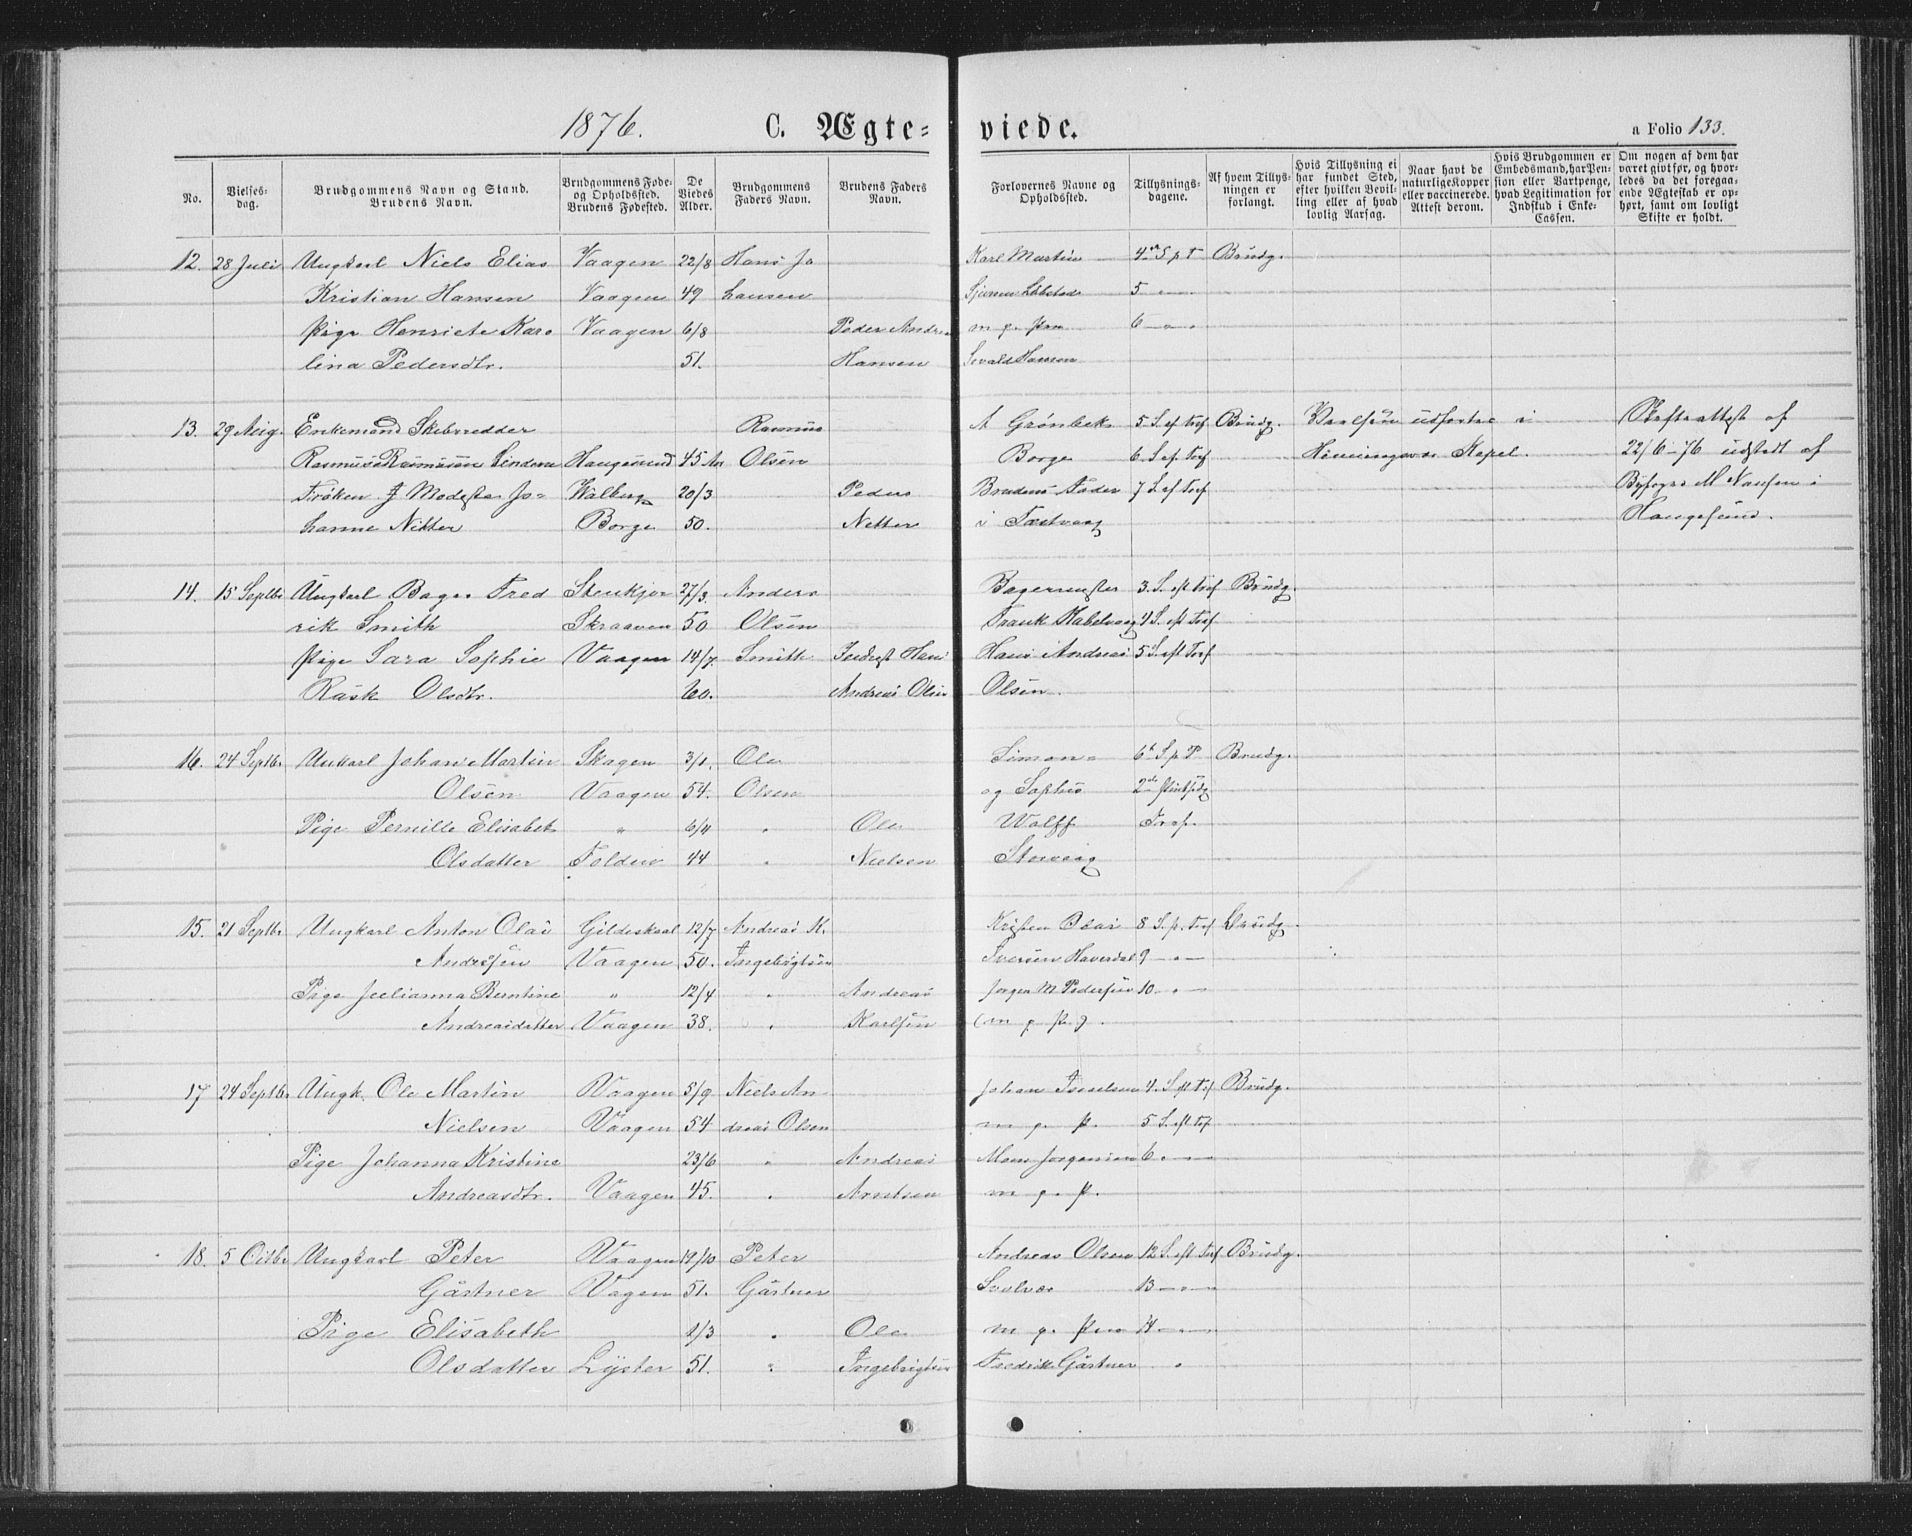 1876. C. Ægte= viede. a Folio 133.
No. Vielses-dag. Brudgommens Navn og Stand. Brudens Navn. Brudgommens Føde- og Opholdssted. Brudens Fødested. De Viedes Alder. Brudgommens Faders Navn. Brudens Faders Navn. Forlovernes Navne og Opholdssted. Tillysnings-dagene. Af hvem Tillysningen er forlangt. Hvis Tillysning ei har fundet Sted, efter hvilken Bevilling eller af hvad lovlig Aarsag. Naar havt de naturlige Kopper eller vaccinerede. Attest derom. Hvis Brudgommen er Embedsmand, har Pension eller Vartpenge, hvad Legitimation for Indskud i Enke-Cassen. Om nogen af dem har varet givt før, og hvorledes da det foregaaende Ægteskab er ophørt, samt om lovligt Skifte er holdt.
12. 28 Juli Ungkarl Niels Elias Vaagen 22/8 Hans Jo Karl Martin 4de S p T Brudg.
Kristian Hansen Vaagen 49 hansen 5 "
Pige Henriete Karo Vaagen 6/8 Peder Andre m. p. Pen 6 "
lina Pedersdtr. 51. Hansen Sevald Hansen
13. 29 Aug. Enkemand Skibsredder Rasmus A Grønbek 5 S. ef Tref Brudg. udførtes i Skifteattest af
Rasmus Rasmussen Haugesund 45 Aar Olsen Borge 6 S. ef. Tref Kapel. 22/6-76 udstedt af
Frøken J Modeste Jo= 20/3 Peder Brudens Fader 7 S. ef Tref M Nansen i
hanne Nitter Borge 50. Netter i Haugesund.
14. 15 Septbr Ungkarl Bager Fred Stenkjer 27/3. Anders Bagermester 3. S. eft Tref Brudg.
rik Smith Skraaven 50 Olsen Frank Kabelvaag 4 S. eft Tref
Pige Sara Sophie Vaagen 14/7. Smith Hans Hans Andreas 5 S. eft Tref
Rask Olsdtr. 60. Andreas Olsen Olsen.
16. 24 Septbr Unkarl Johan Martin Skagen 3/1. Ole Simon= 6te S p T Brudg.
Olsen Vaagen 54. Olsen og Sophus 2den
Pige Pernille Elisabet " 6/4 " Ole Wolff Tref.
Olsdatter Folden 44 " Nielsen Storvaag
15. 21 Septbr Ungkarl Anton Olai Gildeskaal 12/7 Andreas K. Kristen Olai 8 S. p. Tref Brudg.
Andresen Vaagen 50. Ingebrigtsen Iversen Haverdal 9 "
Pige Julianna Berntine " 12/4 " Andreas Jorgen M Pedersen 10 "
Andreasdatter Vaagen 38. " Karlsen (m p. P.)
17 24 Septbr Ungk. Ole Martin Vaagen 5/9 Niels An Johan 4. S eft Tref Brudg.
Nielsen Vaagen 54 dreas Olsen m p. P. 5 S. eft Tref
Pige Johanna Kristine 23/6 " Andreas Mons Jorgensen 6 "
Andreasdtr. Vaagen 45. " Arntsen m p. P.
18. 5 Octbr Ungkarl Peter Vaagen 19/10 Peter Andreas Olsen 12 S. eft Tref Brudg.
Gårtner Vagen 51. Gårtner Svolvær 13 "
Pige Elisabeth 1/3 " Ole m p. Pen 14 "
Olsdatter Lyster 51. " Ingebrigtsen Fredrik Gårtner "